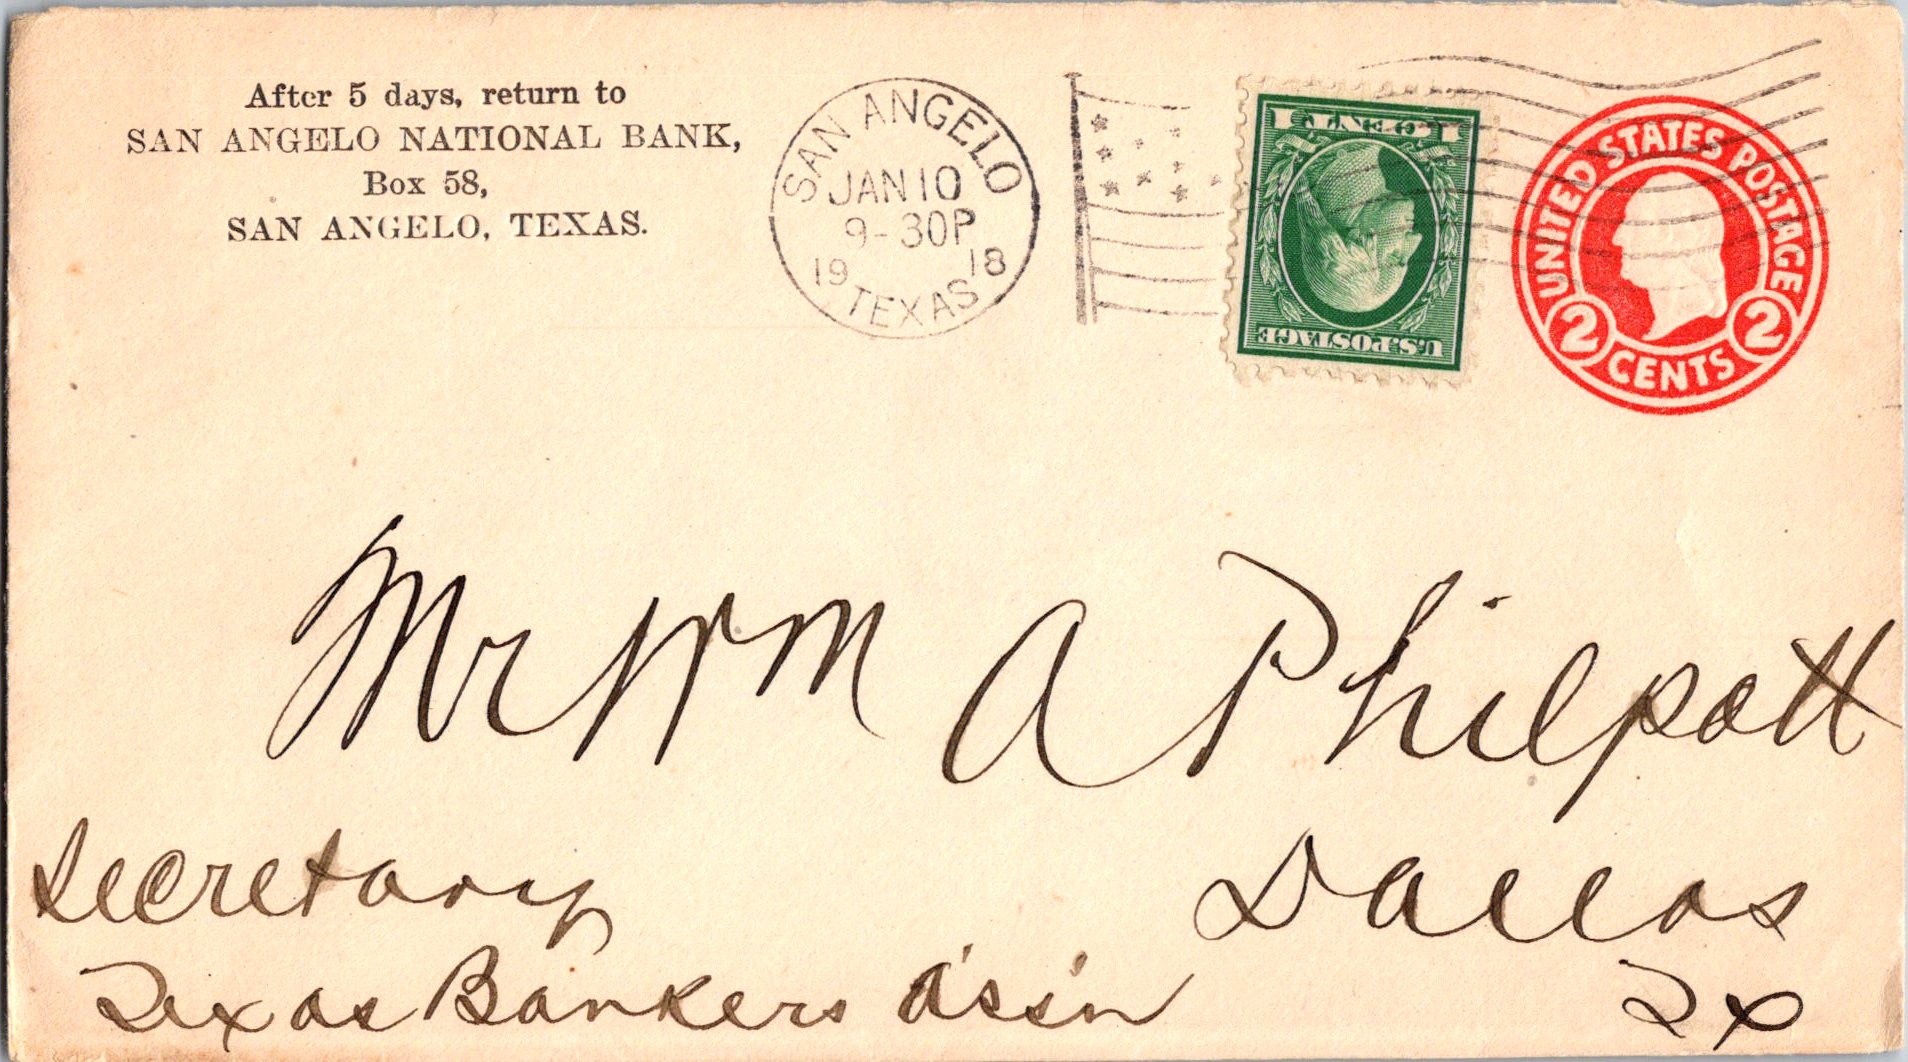 After 5 days, return to
SAN ANGELO NATIONAL BANK,
Box 58,
SAN ANGELO, TEXAS.
SAN ANGELO
JAN 10
9-30P
19 18
TEXAS
1 CENT 1
U.S. POSTAGE
UNITED STATES POSTAGE
2 CENTS 2
Mr Wm A Philpott
Secretary
Texas Bankers a'ss'n
Dallas
Tx